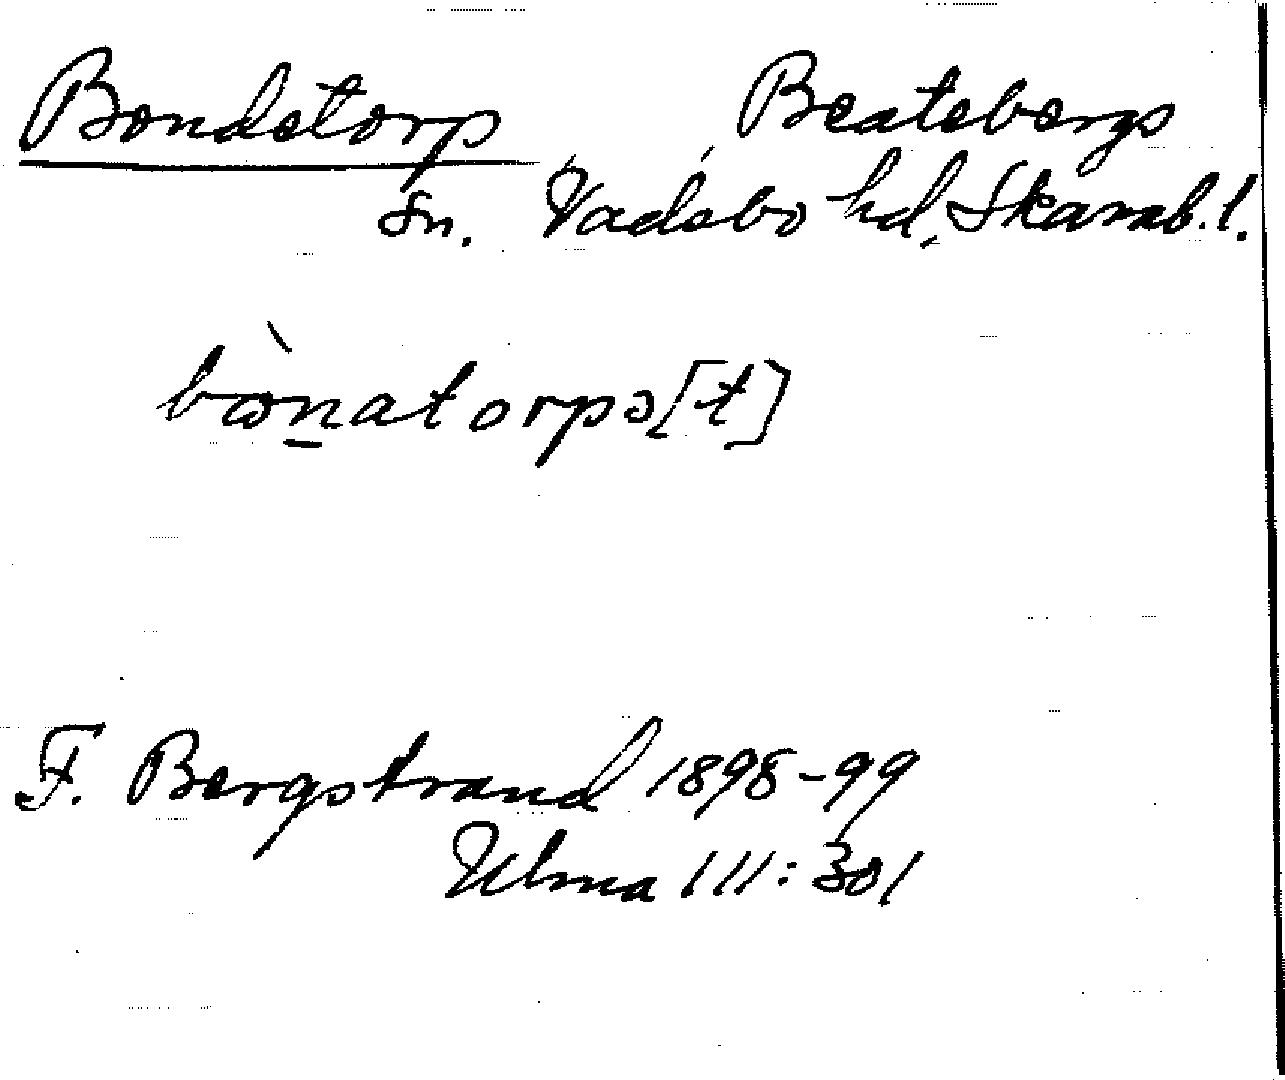 Bondetorp Beatebergs
Sn. Vadsbo hd, Skarab. l.
bὼn̲atorpə[t]
F. Bergstrand 1898-99
Ulma 111:301